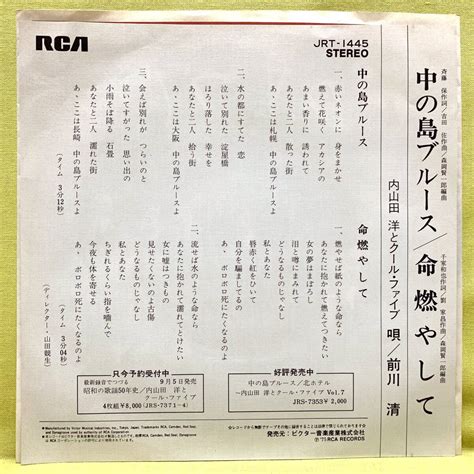 RCA
JRT-1445
STEREO
斉藤 保作詞/吉田 佐作曲/森岡賢一郎編曲
中の島ブルース/命燃やして
千家和也作詞/劉 家昌作曲/森岡賢一郎編曲
内山田 洋とクール・ファイブ 唄/前川 清
中の島ブルース
一、赤いネオンに 身をまかせ
燃えて花咲く アカシアの
あまい香りに 誘われて
あなたと二人 散った街
あ、ここは札幌 中の島ブルースよ
二、水の都にすてた 恋
泣いて別れた 淀屋橋
ほろり落した 幸せを
あなたと二人 拾う街
あ、ここは大阪 中の島ブルースよ
三、会えば別れが つらいのと
泣いてすがった 思い出の
小雨そぼ降る 石畳
あなたと二人 濡れた街
あ、ここは長崎 中の島ブルースよ
(タイム 3分12秒)
命燃やして
一、燃やせば紙のような命なら
あなたに抱かれて燃えてきたい
女の夢はまぼろし
泪と噂にまみれて
どうなるものじゃなし
唇赤く紅をひいて
自分を騙しましてるの
私とあなた
あ、ボロボロ死にたくなるのよ
二、流せば水のような命なら
あなたに抱かれて濡れてとけたい
女に嘘はつきもの
見せたくないの古傷
どうなるものじゃなし
ちぎれるくらい指を噛んで
今夜も体を寄せる
私とあなた
あ、ボロボロ死にたくなるのよ
(タイム 3分04秒)
(ディレクター・山田競生)
只今予約受付中
最新録音でつづる 9月5日発売
昭和の歌謡50年史/内山田 洋とクール・ファイブ
4枚組¥8,000 (JRS-7371~4)
好評発売中
中の島ブルース/北ホテル
~内山田 洋とクール・ファイブ Vol.7
JRS-7353 ¥2,000
発売元:ビクター音楽産業株式会社
Ⓟ'75 RCA RECORDS